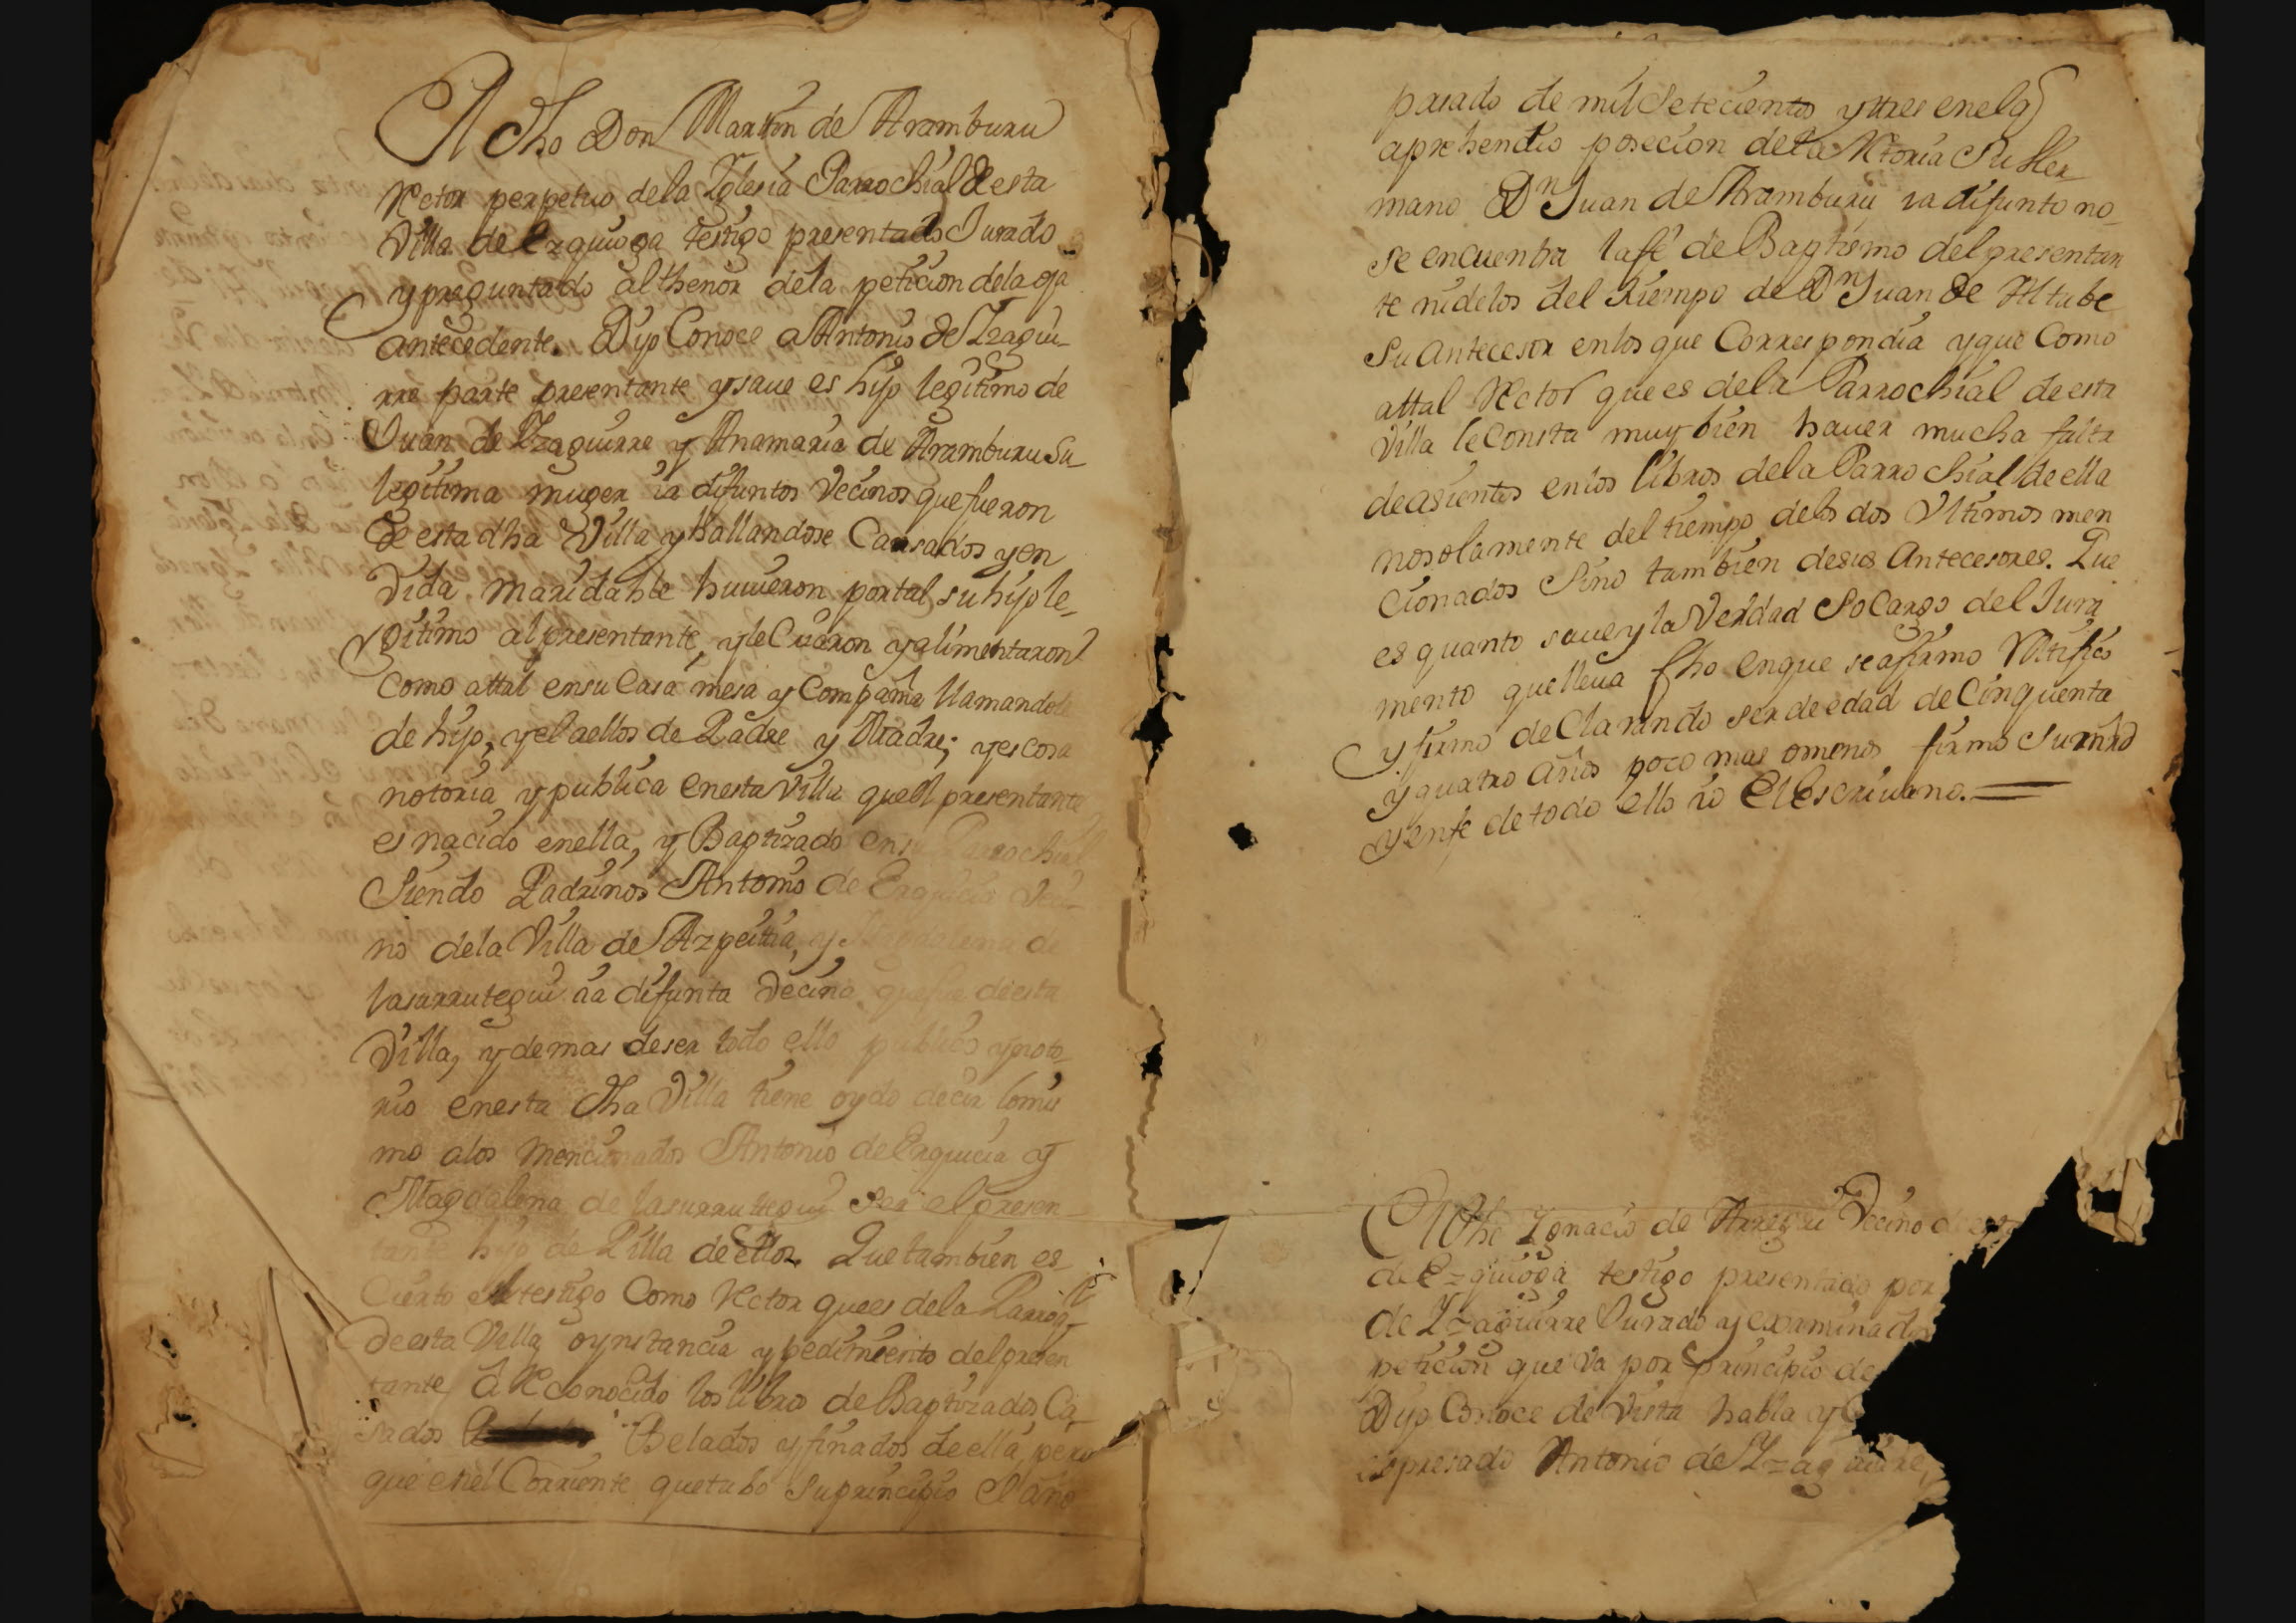 Al dho Don Martin de Aramburu
Rector perpetuo de la Iglesia Parrochial de esta
Villa de Ezquioga testigo presentado Jurado
y preguntado al thenor de la peticion de la oja
antecedente. Dijo Conoce a Antonio de Yzagui-
rre parte presentante y saue es hijo legitimo de
Juan de Yzaguirre y Anamaria de Aramburu su
legitima muger ia difuntos Vecinos que fueron
de esta dha Villa y hallandose Cassados y en
Vida maridable huuieron por tal su hijo le-
gitimo al presentante, y le Criaron y alimentaron
como attal en su Casa mesa y Compañia llamandole
de hijo, y el a ellos de Padre y Madre; y es cosa
notoria y publica en esta Villa que el presentante
es nacido en ella, y Baptizado en su Parrochial
Siendo Padrinos Antonio de Erquicia Veci-
no de la Villa de Azpeitia, y Magdalena de
lasurrutegui ia difunta Vecina que fue de esta
Villa, y demas de ser todo ello publico y noto-
rio en esta dha Villa tiene oydo decir lo mis
mo a los mencionados Antonio de Erquicia y
Magdalena de lasurrutegui ser el presen
tante hijo de Pilla de ellos. Que tambien es
Cierto el testigo Como Rector que es de la Parroq
de esta Villa oy instancia y pedimiento del presen
tante á Reconocido los libros de Baptizados Ca-
sados Belados y finados de ella, pero
que en el Corriente que tubo su principio el año
pasado de mil Setecientos y tres en el q
aprehendio posecion de la Rtoria Su Her-
mano Dn Juan de Aramburu ia difunto no-
se encuentra la fe de Baptismo del presentan
te ni de los del tiempo de Dn Juan de Altube
Su Antecesor en los que Correspondia y que Como
attal Rector que es de la Parrochial de esta
Villa le Consta muy bien hauer mucha falta
de asientos en los libros de la Parrochial de ella
no solamente del tiempo de los dos Ultimos men
cionados Sino tambien de sus Antecesores. Que
es quanto saue y la Verdad So Cargo del Jura
mento que lleua fho en que se afirmo Ratifico
y firmo declarando ser de edad de Cinquenta
y quatro años poco mas o menos firmo Su mrd
y en fe de todo ello io El Escriuano.
Al dho Ignacio de Arregui Vecino de esta
de Ezquioga testigo presentado por
de Yzaguirre Jurado y examinado
peticion que va por principio de
Dijo Conoce de Vista habla y C
espresado Antonio de Yzaguirre,